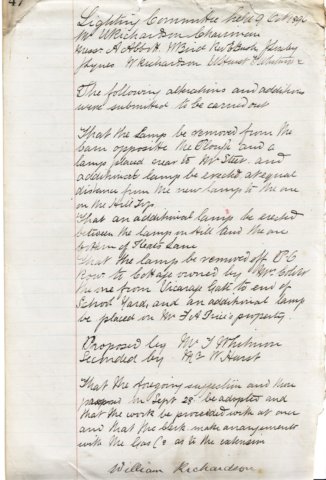 47
Lighting Committee held 9 Oct
Mr W Richardson Chairman
Messrs A Abbott W Bird Rev Bush
W Richardson W Hurst
The following alterations and additions
were submitted to be carried out
That the Lamp be removed from the
barn opposite the Plough and a
lamp placed near to Mr and
additional lamp be erected at equal
distance from the new lamp to the one
on the Hill Top.
That an additional lamp be erected
between the lamp on Hill and the one
bottom of Lane
That the lamp be removed off P.C
Row to Cottage owned by Mr
the one from Vicarage Gate to end of
School Yard, and an additional lamp
be placed on Mr F A property
Proposed by Mr J Whitmore
Seconded by Mr W Hurst
That the foregoing suggestion and those
in Sept 28 be adopted and
that the work be proceeded with at once
and that the Clerk make arrangements
with the Gas Co as to the extension
William Richardson